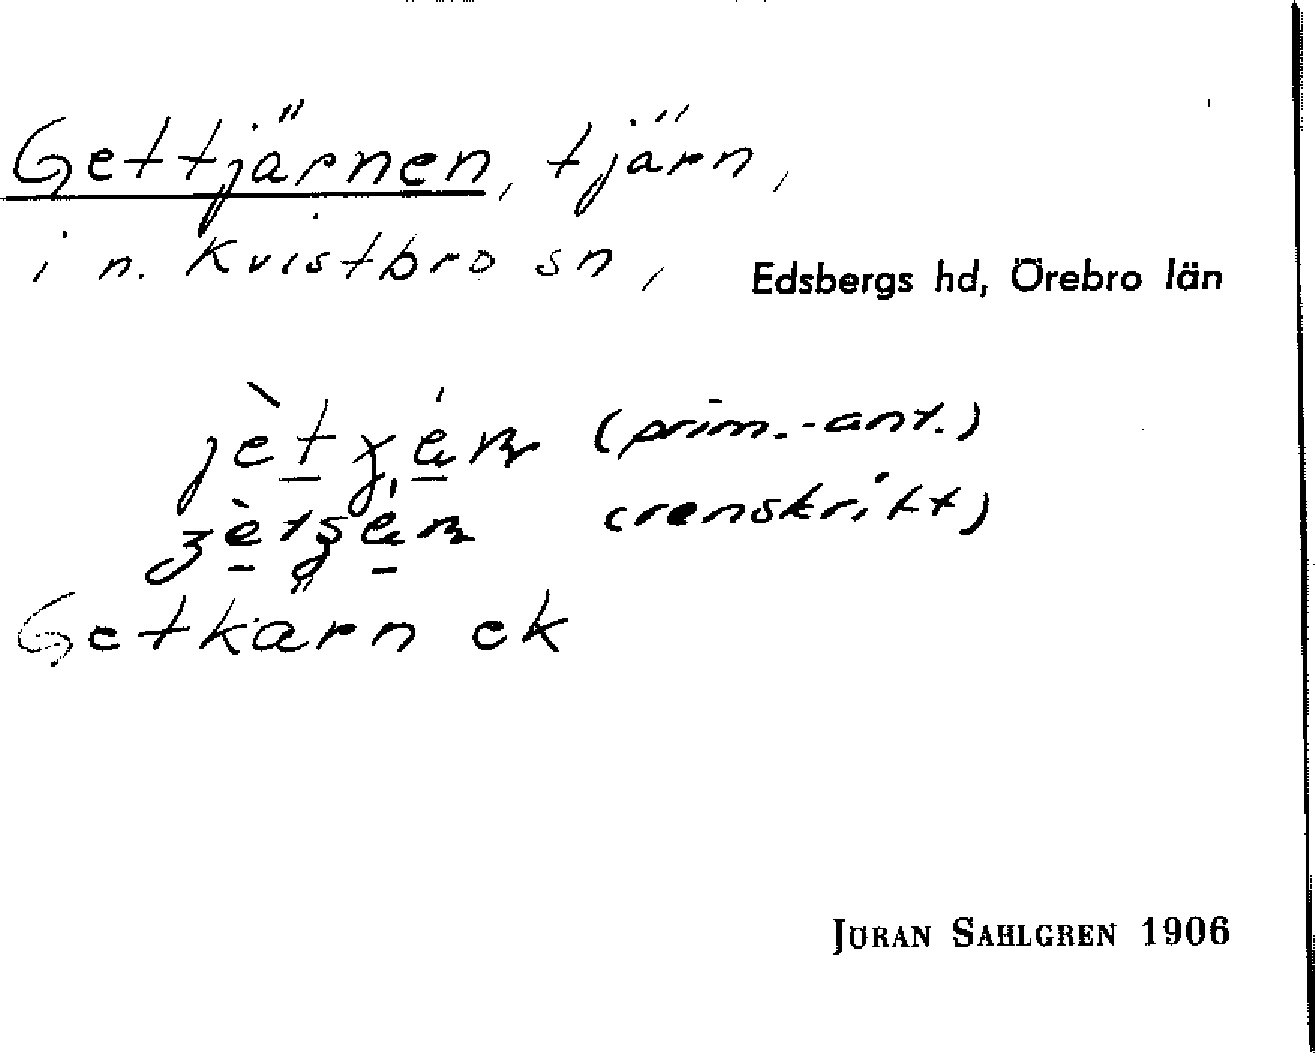 Gettjärnen, tjärn,
i n. Kvistbro sn, Edsbergs hd, Örebro län
(prim.-ant.)
(renskrift)
Getkärn ek
JÖRAN SAHLGREN 1906